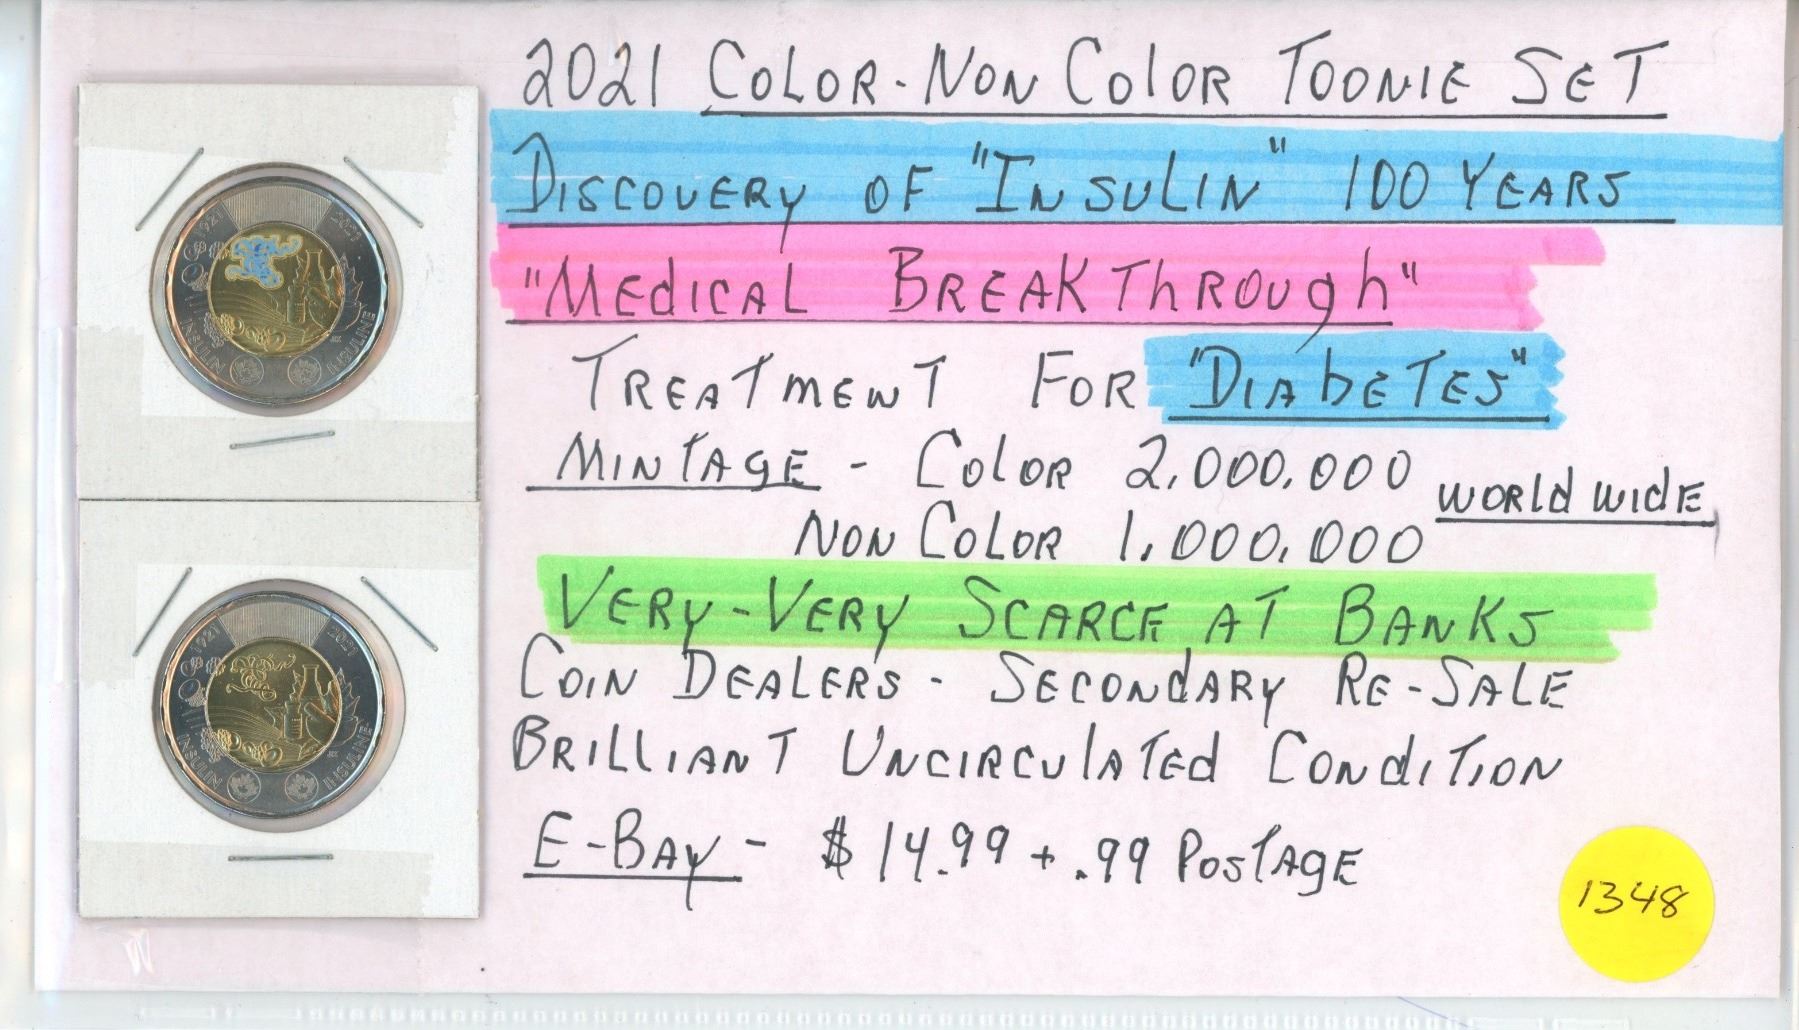 2021 COLOR-NON COLOR TOONIE SET
DISCOVERY OF "INSULIN" 100 YEARS
"MEDICAL BREAKTHROUGH"
TREATMENT FOR "DIABETES"
MINTAGE - COLOR 2,000,000
WORLD WIDE
NON COLOR 1,000,000
VERY-VERY SCARCE AT BANKS
COIN DEALERS - SECONDARY RE-SALE
BRILLIANT UNCIRCULATED CONDITION
E-BAY - $14.99 + .99 POSTAGE
1348
1921 2021
INSULIN INSULINE
1921 2021
INSULIN INSULINE